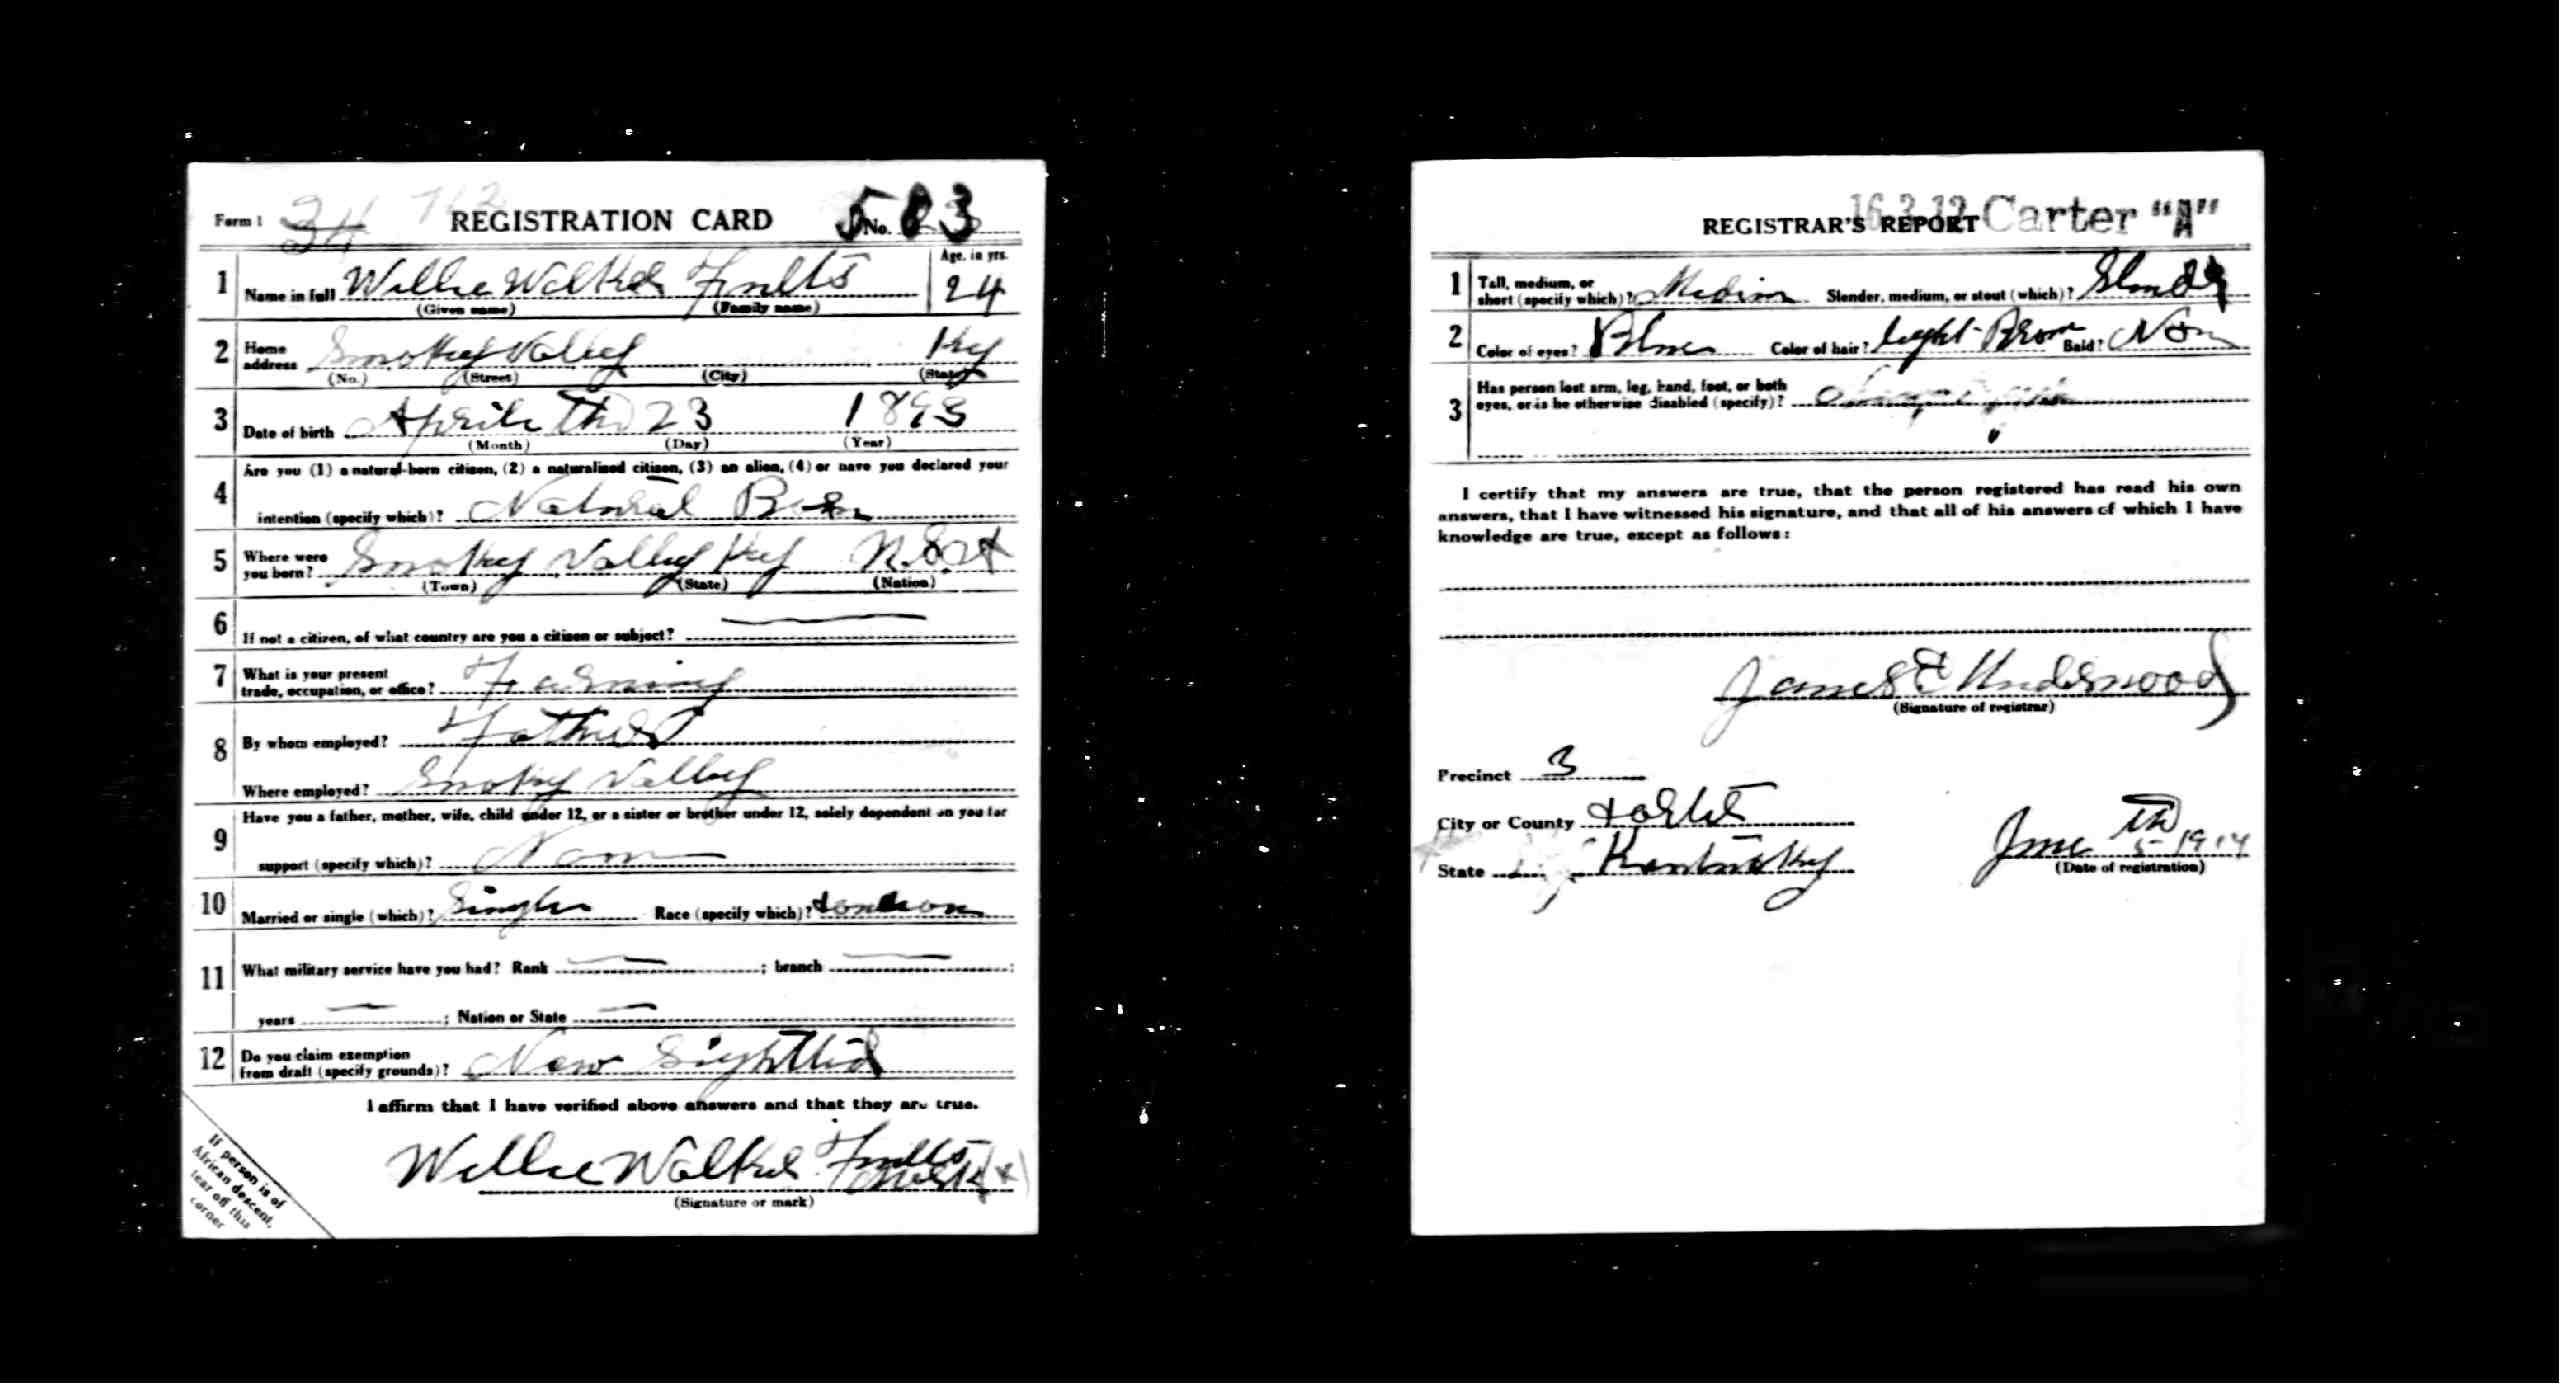 Form 1 34 762 REGISTRATION CARD No. 583
1 Name in full Willie Walker Fults Age, in yrs. 24
(Given name) (Family name)
2 Home address Smokey Valley Ky
(No.) (Street) (City) (State)
3 Date of birth Aprile Th 23 1893
(Month) (Day) (Year)
4 Are you (1) a natural-born citizen, (2) a naturalized citizen, (3) an alien, (4) or have you declared your
intention (specify which)? Natural Born
5 Where were you born? Smokey Valley Ky U.S.A
(Town) (State) (Nation)
6 If not a citizen, of what country are you a citizen or subject?
7 What is your present
trade, occupation, or office? Farming
8 By whom employed? Father
Where employed? Smoky Valley
9 Have you a father, mother, wife, child under 12, or a sister or brother under 12, solely dependent on you for
support (specify which)? Non
10 Married or single (which)? Single Race (specify which)?
11 What military service have you had? Rank ; branch ;
years ; Nation or State
12 Do you claim exemption
from draft (specify grounds)?
I affirm that I have verified above answers and that they are true.
Willie Walker Fults
(Signature or mark)
If person is of
African descent,
tear off this
corner
16 3 12 Carter "A"
REGISTRAR'S REPORT
1 Tall, medium, or
short (specify which)? Medium Slender, medium, or stout (which)? Slender
2 Color of eyes? Blue Color of hair? Light Brown Bald? Non
3 Has person lost arm, leg, hand, foot, or both
eyes, or is he otherwise disabled (specify)?
I certify that my answers are true, that the person registered has read his own
answers, that I have witnessed his signature, and that all of his answers of which I have
knowledge are true, except as follows:
James E Underwood
(Signature of registrar)
Precinct 3
City or County Carter
State Kentucky June 5th 1917
(Date of registration)